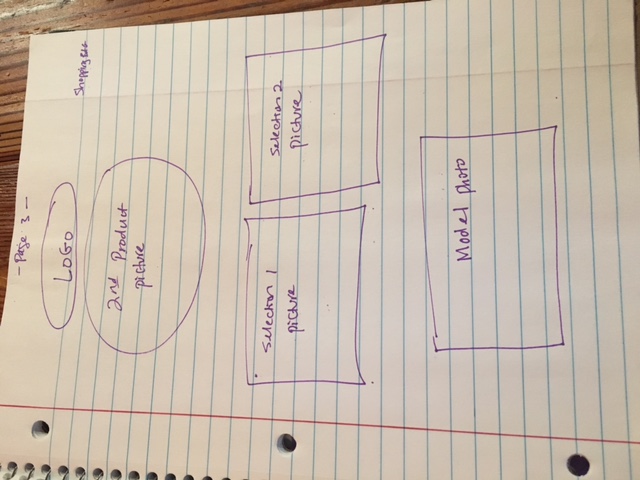 - Page 3 -
LOGO
Shopping
2nd Product
picture
Selection 1
picture
Selection 2
picture
Model photo